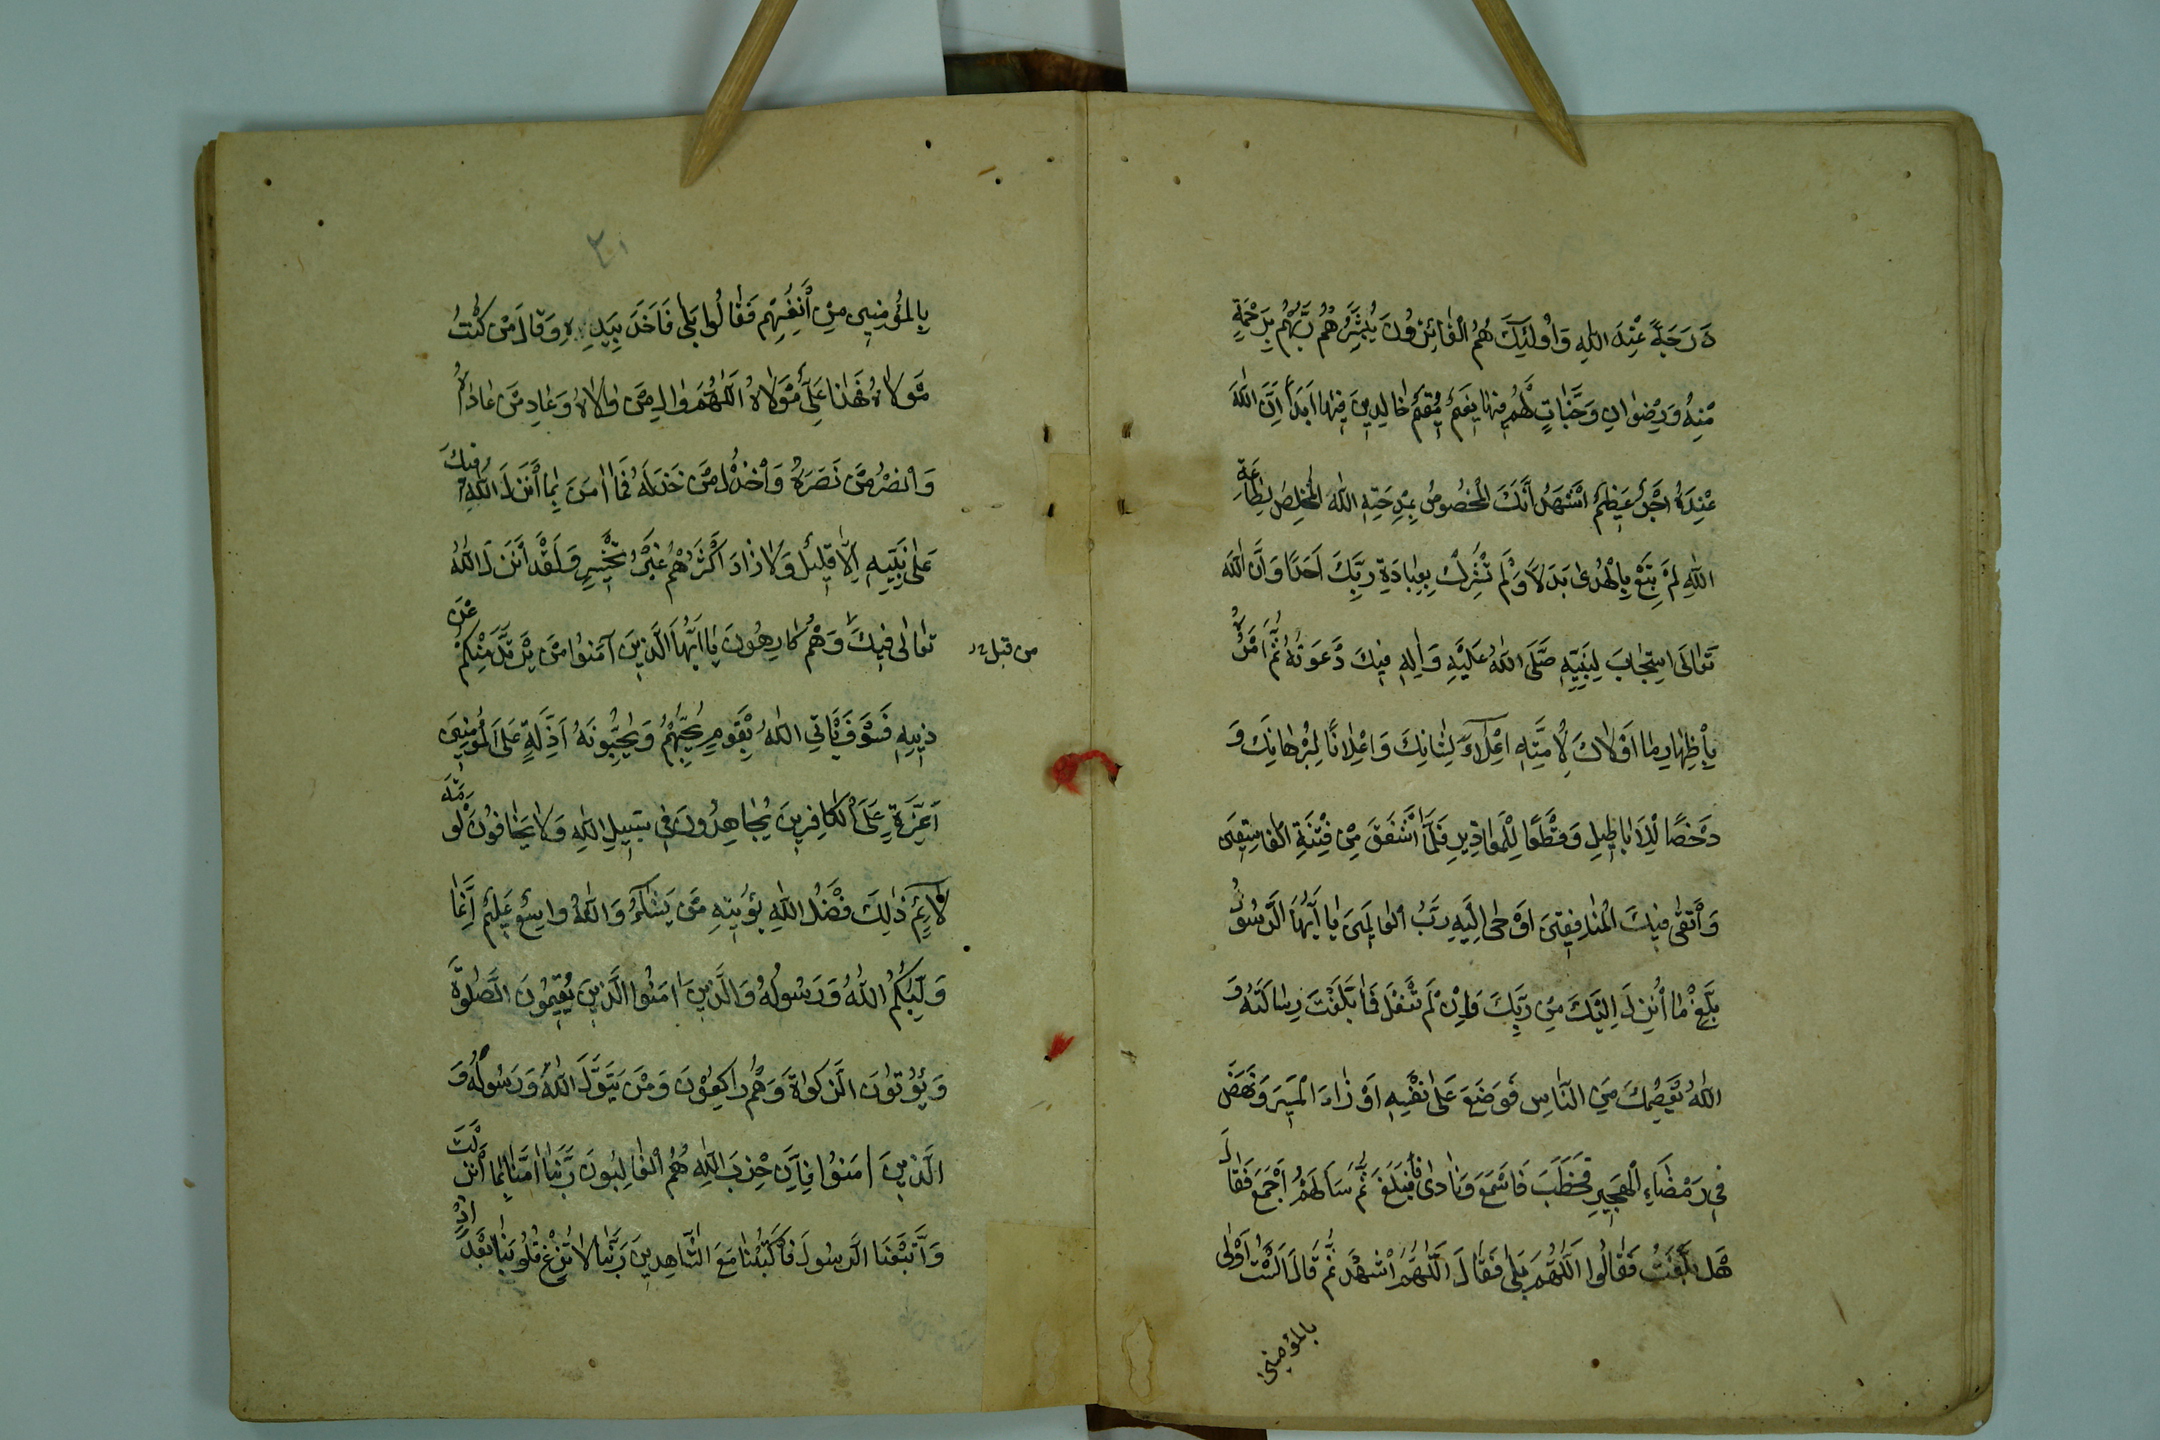 دَرَجَةً عِنْدَ اللهِ وَاُولٰئِكَ هُمُ الْفٰائِزُونَ يُبَشِّرُهُمْ رَبُّهُمْ بِرَحْمَةٍ
مِنْهُ وَرِضْوٰانٍ وَجَنّٰاتٍ لَهُمْ فِيهٰا نَعِيمٌ مُقِيمٌ خٰالِدِينَ فِيهٰا اَبَداً اِنَّ اللهَ
عِنْدَهُ اَجْرٌ عَظِيمٌ اَشْهَدُ اَنَّكَ الْمَخْصُوصُ بِمِدْحَتِهِ اللهَ الْمُخْلِصُ لِطٰاعَةِ
اللهِ لَمْ تَبْغِ بِالْهُدىٰ بَدَلاً وَلَمْ تُشْرِكْ بِعِبٰادَةِ رَبِّكَ اَحَداً وَاَنَّ اللهَ
تَعٰالَى اسْتَجٰابَ لِنَبِيِّهِ صَلَّى اللهُ عَلَيْهِ وَاٰلِهِ فِيكَ دَعْوَتَهُ ثُمَّ اَمَرَهُ
بِاِظْهٰارِ مٰا اَوْلاٰكَ لِاُمَّتِهِ اِعْلاٰءً لِشَانِكَ وَاِعْلاٰنًا لِبُرْهٰانِكَ وَ
دَحْضًا لِلْاَبٰاطِيلِ وَقَطْعًا لِلْمَعٰاذِيرِ فَلَمّٰا اَشْفَقَ مِنْ فِتْنَةِ الْفٰاسِقِينَ
وَاتَّقىٰ فِيكَ الْمُنٰافِقِينَ اَوْحىٰ اِلَيْهِ رَبُّ الْعٰالَمِينَ يٰا اَيُّهَا الرَّسُولُ
بَلِّغْ مٰا اُنْزِلَ اِلَيْكَ مِنْ رَبِّكَ وَاِنْ لَمْ تَفْعَلْ فَمٰا بَلَّغْتَ رِسٰالَتَهُ وَ
اللهُ يَعْصِمُكَ مِنَ النّٰاسِ فَوَضَعَ عَلىٰ نَفْسِهِ اَوْزٰارَ الْمَسِيرِ وَنَهَضَ
فِي رَمْضَاءِ الْهَجِيرِ فَخَطَبَ فَاَسْمَعَ وَنٰادىٰ فَاَبْلَغَ ثُمَّ سَاَلَهُمْ اَجْمَعَ فَقٰالَ
هَلْ بَلَّغْتُ فَقٰالُوا اَللّٰهُمَّ بَلىٰ فَقٰالَ اَللّٰهُمَّ اشْهَدْ ثُمَّ قٰالَ اَلَسْتُ اَوْلىٰ
بالمؤمنين
٢٠
بِالْمُؤْمِنِينَ مِنْ اَنْفُسِهِمْ فَقٰالُوا بَلىٰ فَاَخَذَ بِيَدِهِ وَقٰالَ مَنْ كُنْتُ
مَوْلاٰهُ فَهٰذٰا عَلِىٌّ مَوْلاٰهُ اَللّٰهُمَّ وٰالِ مَنْ وٰالاٰهُ وَعٰادِ مَنْ عٰادٰاهُ
وَانْصُرْ مَنْ نَصَرَهُ وَاخْذُلْ مَنْ خَذَلَهُ فَمٰا اٰمَنَ بِمٰا اَنْزَلَ اللهُ فِيكَ
عَلىٰ نَبِيِّهِ اِلاّٰ قَلِيلٌ وَلاٰ زٰادَ اَكْثَرَهُمْ غَيْرُ تَخْسِيرٍ وَلَقَدْ اَنْزَلَ اللهُ
تَعٰالىٰ فِيكَ وَهُمْ كٰارِهُونَ يٰا اَيُّهَا الَّذِينَ آمَنُوا مَنْ يَرْتَدَّ مِنْكُمْ عَنْ
من قبل
دِينِهِ فَسَوْفَ يَاْتِي اللهُ بِقَوْمٍ يُحِبُّهُمْ وَيُحِبُّونَهُ اَذِلَّةٍ عَلَى الْمُؤْمِنِينَ
اَعِزَّةٍ عَلَى الْكٰافِرِينَ يُجٰاهِدُونَ فِي سَبِيلِ اللهِ وَلاٰ يَخٰافُونَ لَوْمَةَ
لاٰئِمٍ ذٰلِكَ فَضْلُ اللهِ يُؤْتِيهِ مَنْ يَشٰاءُ وَاللهُ وٰاسِعٌ عَلِيمٌ اِنَّمٰا
وَلِيُّكُمُ اللهُ وَرَسُولُهُ وَالَّذِينَ اٰمَنُوا الَّذِينَ يُقِيمُونَ الصَّلوٰةَ
وَيُؤْتُونَ الزَّكوٰاةَ وَهُمْ رٰاكِعُونَ وَمَنْ يَتَوَلَّ اللهَ وَرَسُولَهُ وَ
الَّذِينَ اٰمَنُوا فَاِنَّ حِزْبَ اللهِ هُمُ الْغٰالِبُونَ رَبَّنٰا اٰمَنّٰا بِمٰا اَنْزَلْتَ
وَاتَّبَعْنَا الرَّسُولَ فَاكْتُبْنٰا مَعَ الشّٰاهِدِينَ رَبَّنٰا لاٰ تُزِغْ قُلُوبَنٰا بَعْدَ اِذْ